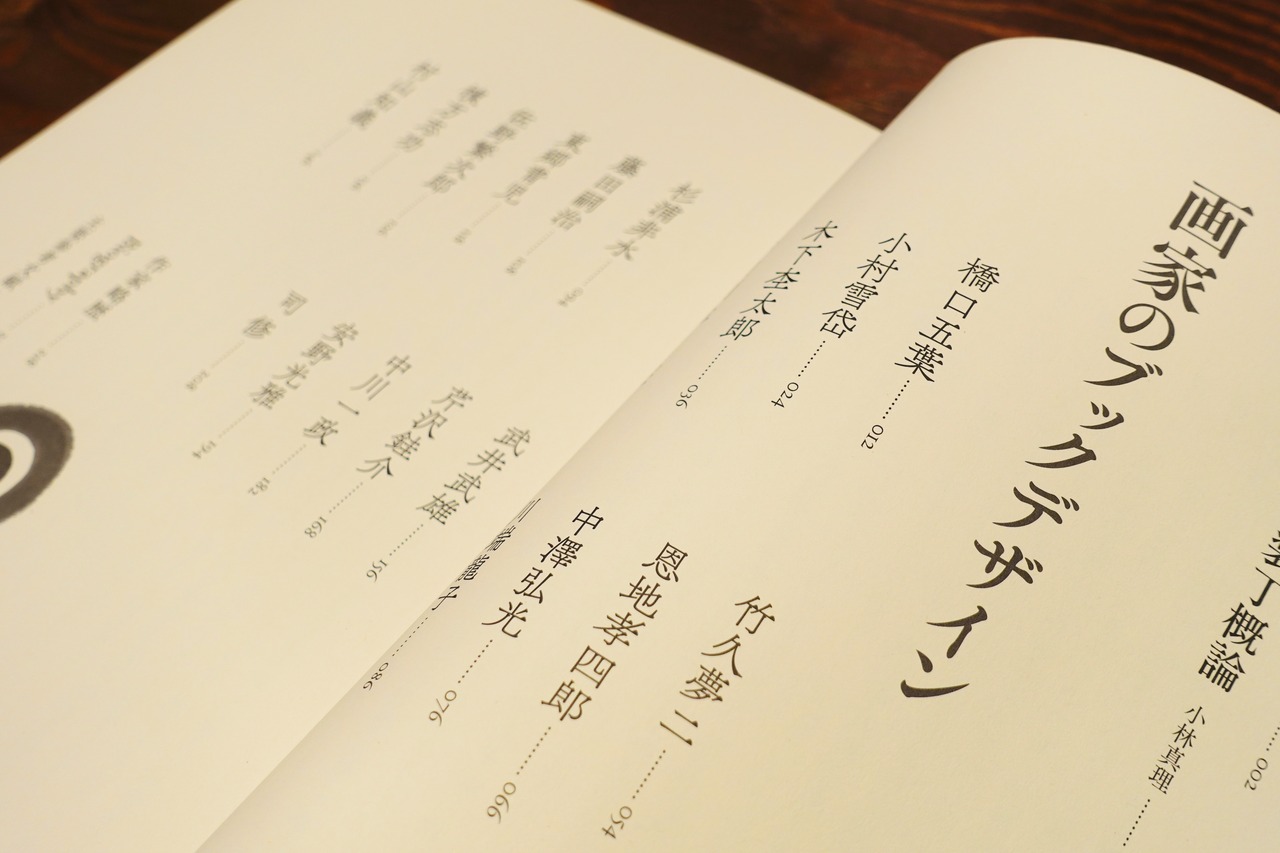 概論 小林真理
002
画家のブックデザイン
橋口五葉 012
小村雪岱 024
木下杢太郎 036
竹久夢二 054
恩地孝四郎 066
中澤弘光 076
川端龍子 086
杉浦非水
藤田嗣治
東郷青児
佐野繁次郎
棟方志功
村山知義
武井武雄
芹沢銈介 156
中川一政 168
安野光雅 182
司修 194